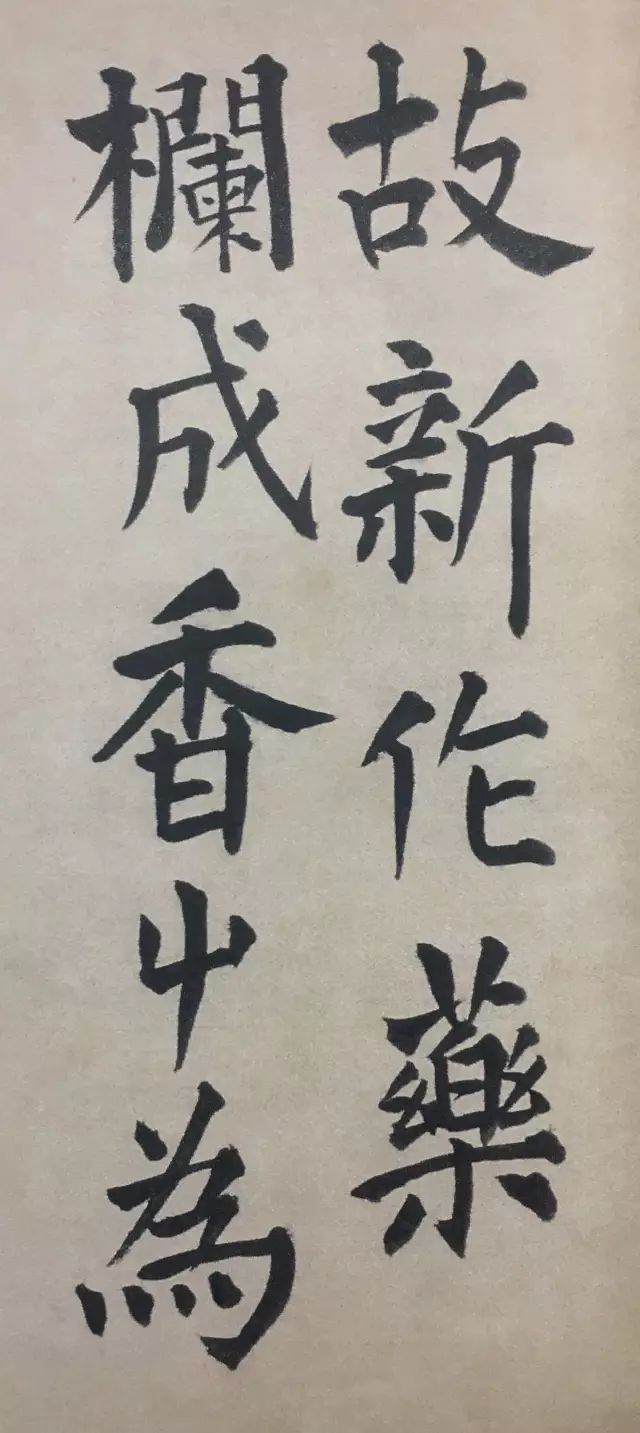 故新作藥
欄成香屮為